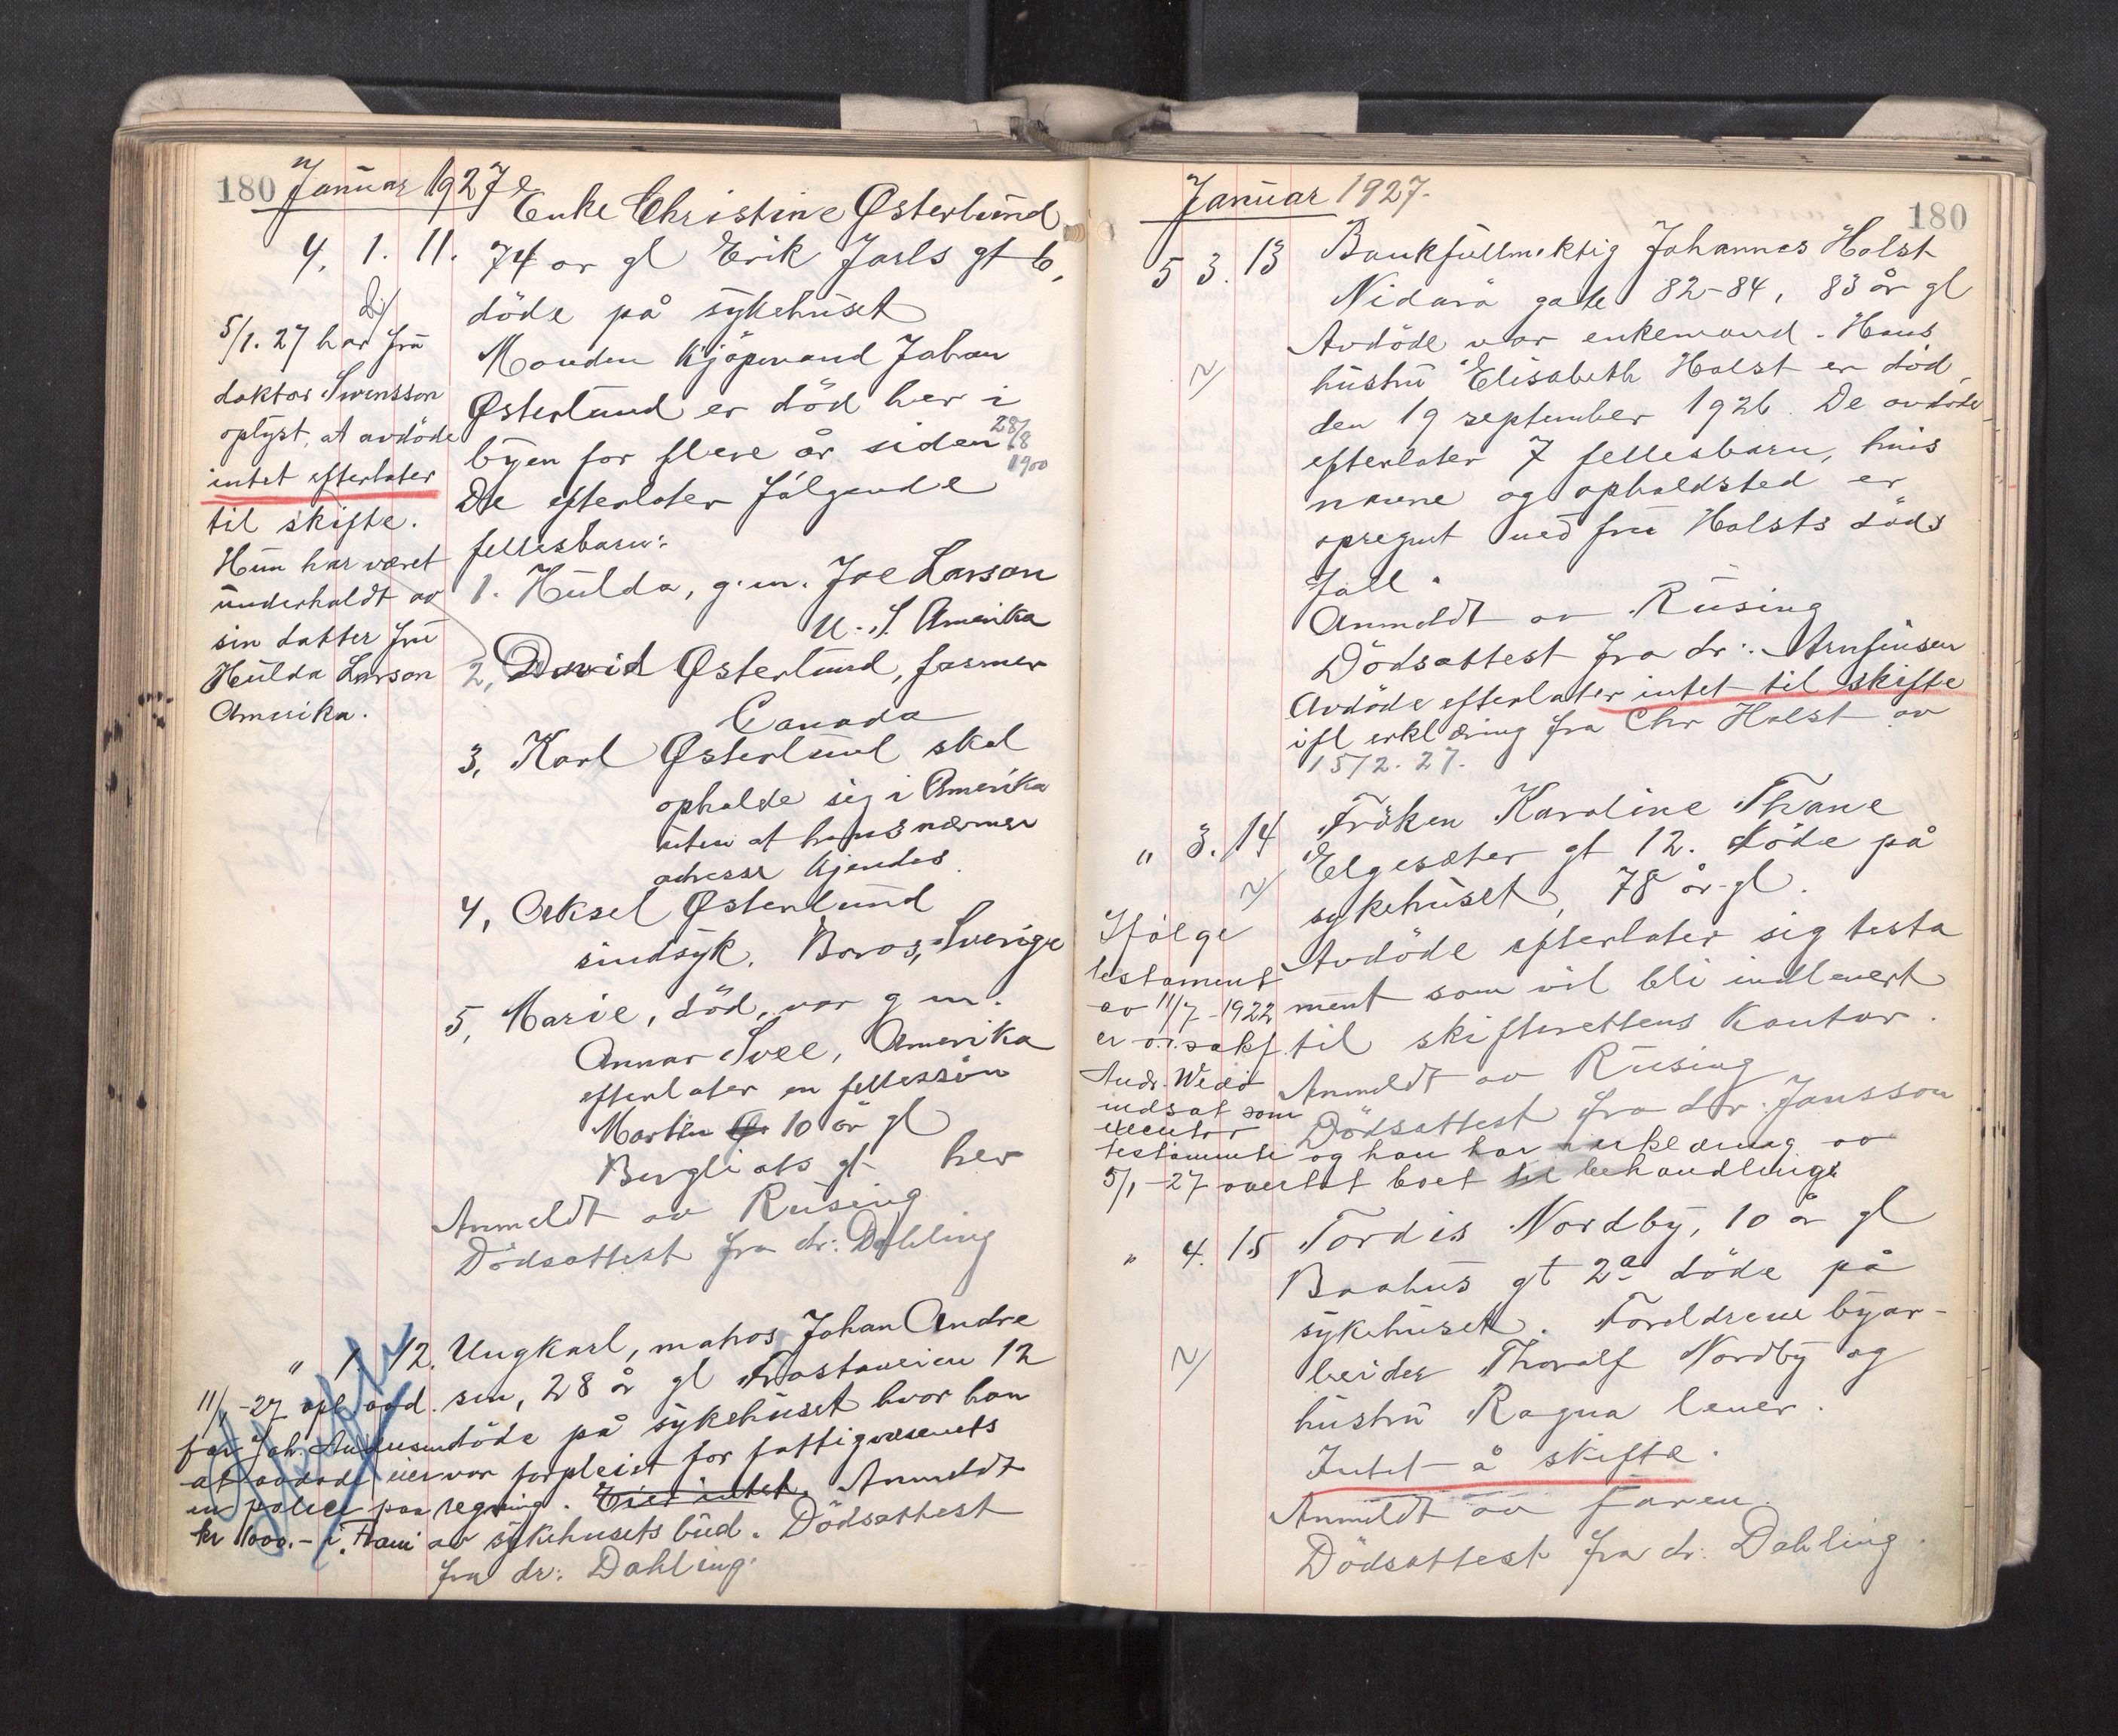 180 Januar 1927
4. 1. 11. Enke Christine Østerlund
74 år gl Erik Jarls gt 6,
döde på sykehuset
Manden Kjöpmand Johan
Østerlund er död her i
byen for flere år siden 28/8 1900
De efterlater följgende
fellesbarn:
1. Hulda, g. m. Joe Larson
U. S. Amerika
2, David Østerlund, farmer
Canada
3, Karl Østerlund skal
opholde sig i Amerika
uten at hans nærmere
adresse kjendes.
4, Aksel Østerlund
sindsyk. Boros, Sverige
5, Marie, död, var g m.
Annar Svee, Amerika
efterlater en fellessön
Martin 10 år gl
Bergliots gt her
Anmeldt av Rusing
Dödsattest fra dr: Dahling
5/1. 27 har fru
doktor Svensson
oplyst, at avdöde
intet efterlater
til skifte.
Hun har været
underholdt av
sin datter fru
Hulda Larson
Amerika.
" 1. 12. Ungkarl, matros Johan Andre
sen, 28 år gl Frostaveien 12
döde på sykehuset hvor han
var forpleiet for fattigvæsenets
regning. Eier intet. Anmeldt
av sykehusets bud. Dödsattest
fra dr: Dahling.
11/1-27 opl avd.
far Joh. Andresen
at avdöde eier
en police paa
kr 1000.- i Fram
Januar 1927.
180
5 3. 13 Bankfullmektig Johannes Holst
Nidarö gate 82-84, 83 år gl
Avdöde var enkemand. Hans
hustru Elisabeth Holst er död
den 19 september 1926. De avdöde
efterlater 7 fellesbarn, hvis
navne og opholdsted er
opregnet ved fru Holsts döds
fall.
Anmeldt av Rusing
Dödsattest fra dr: Arnfinsen
Avdöde efterlater intet til skifte
ifl erklæring fra Chr Holst av
15/2. 27.
" 3. 14 Fröken Karoline Thrane
Elgesæter gt 12. döde på
sykehuset, 78 år gl.
Avdöde efterlater sig testa
ment som vil bli indlevert
til skifterettens Kontor.
Anmeldt av Rusing
Dödsattest fra dr: Jansson
Ifölge
testament
av 11/7-1922
er o.r.sakf.
Andr.
indsat som
executor
testamenti og han har i erklæring av
5/1-27 overtat boet til behandling
" 4. 15 Tordis Nordby, 10 år gl
Baahus gt 2a döde på
sykehuset. Foreldrene byar-
beider Thoralf Nordby og
hustru Ragna lever.
Intet å skifte.
Anmeldt av faren.
Dödsattest fra dr: Dahling.